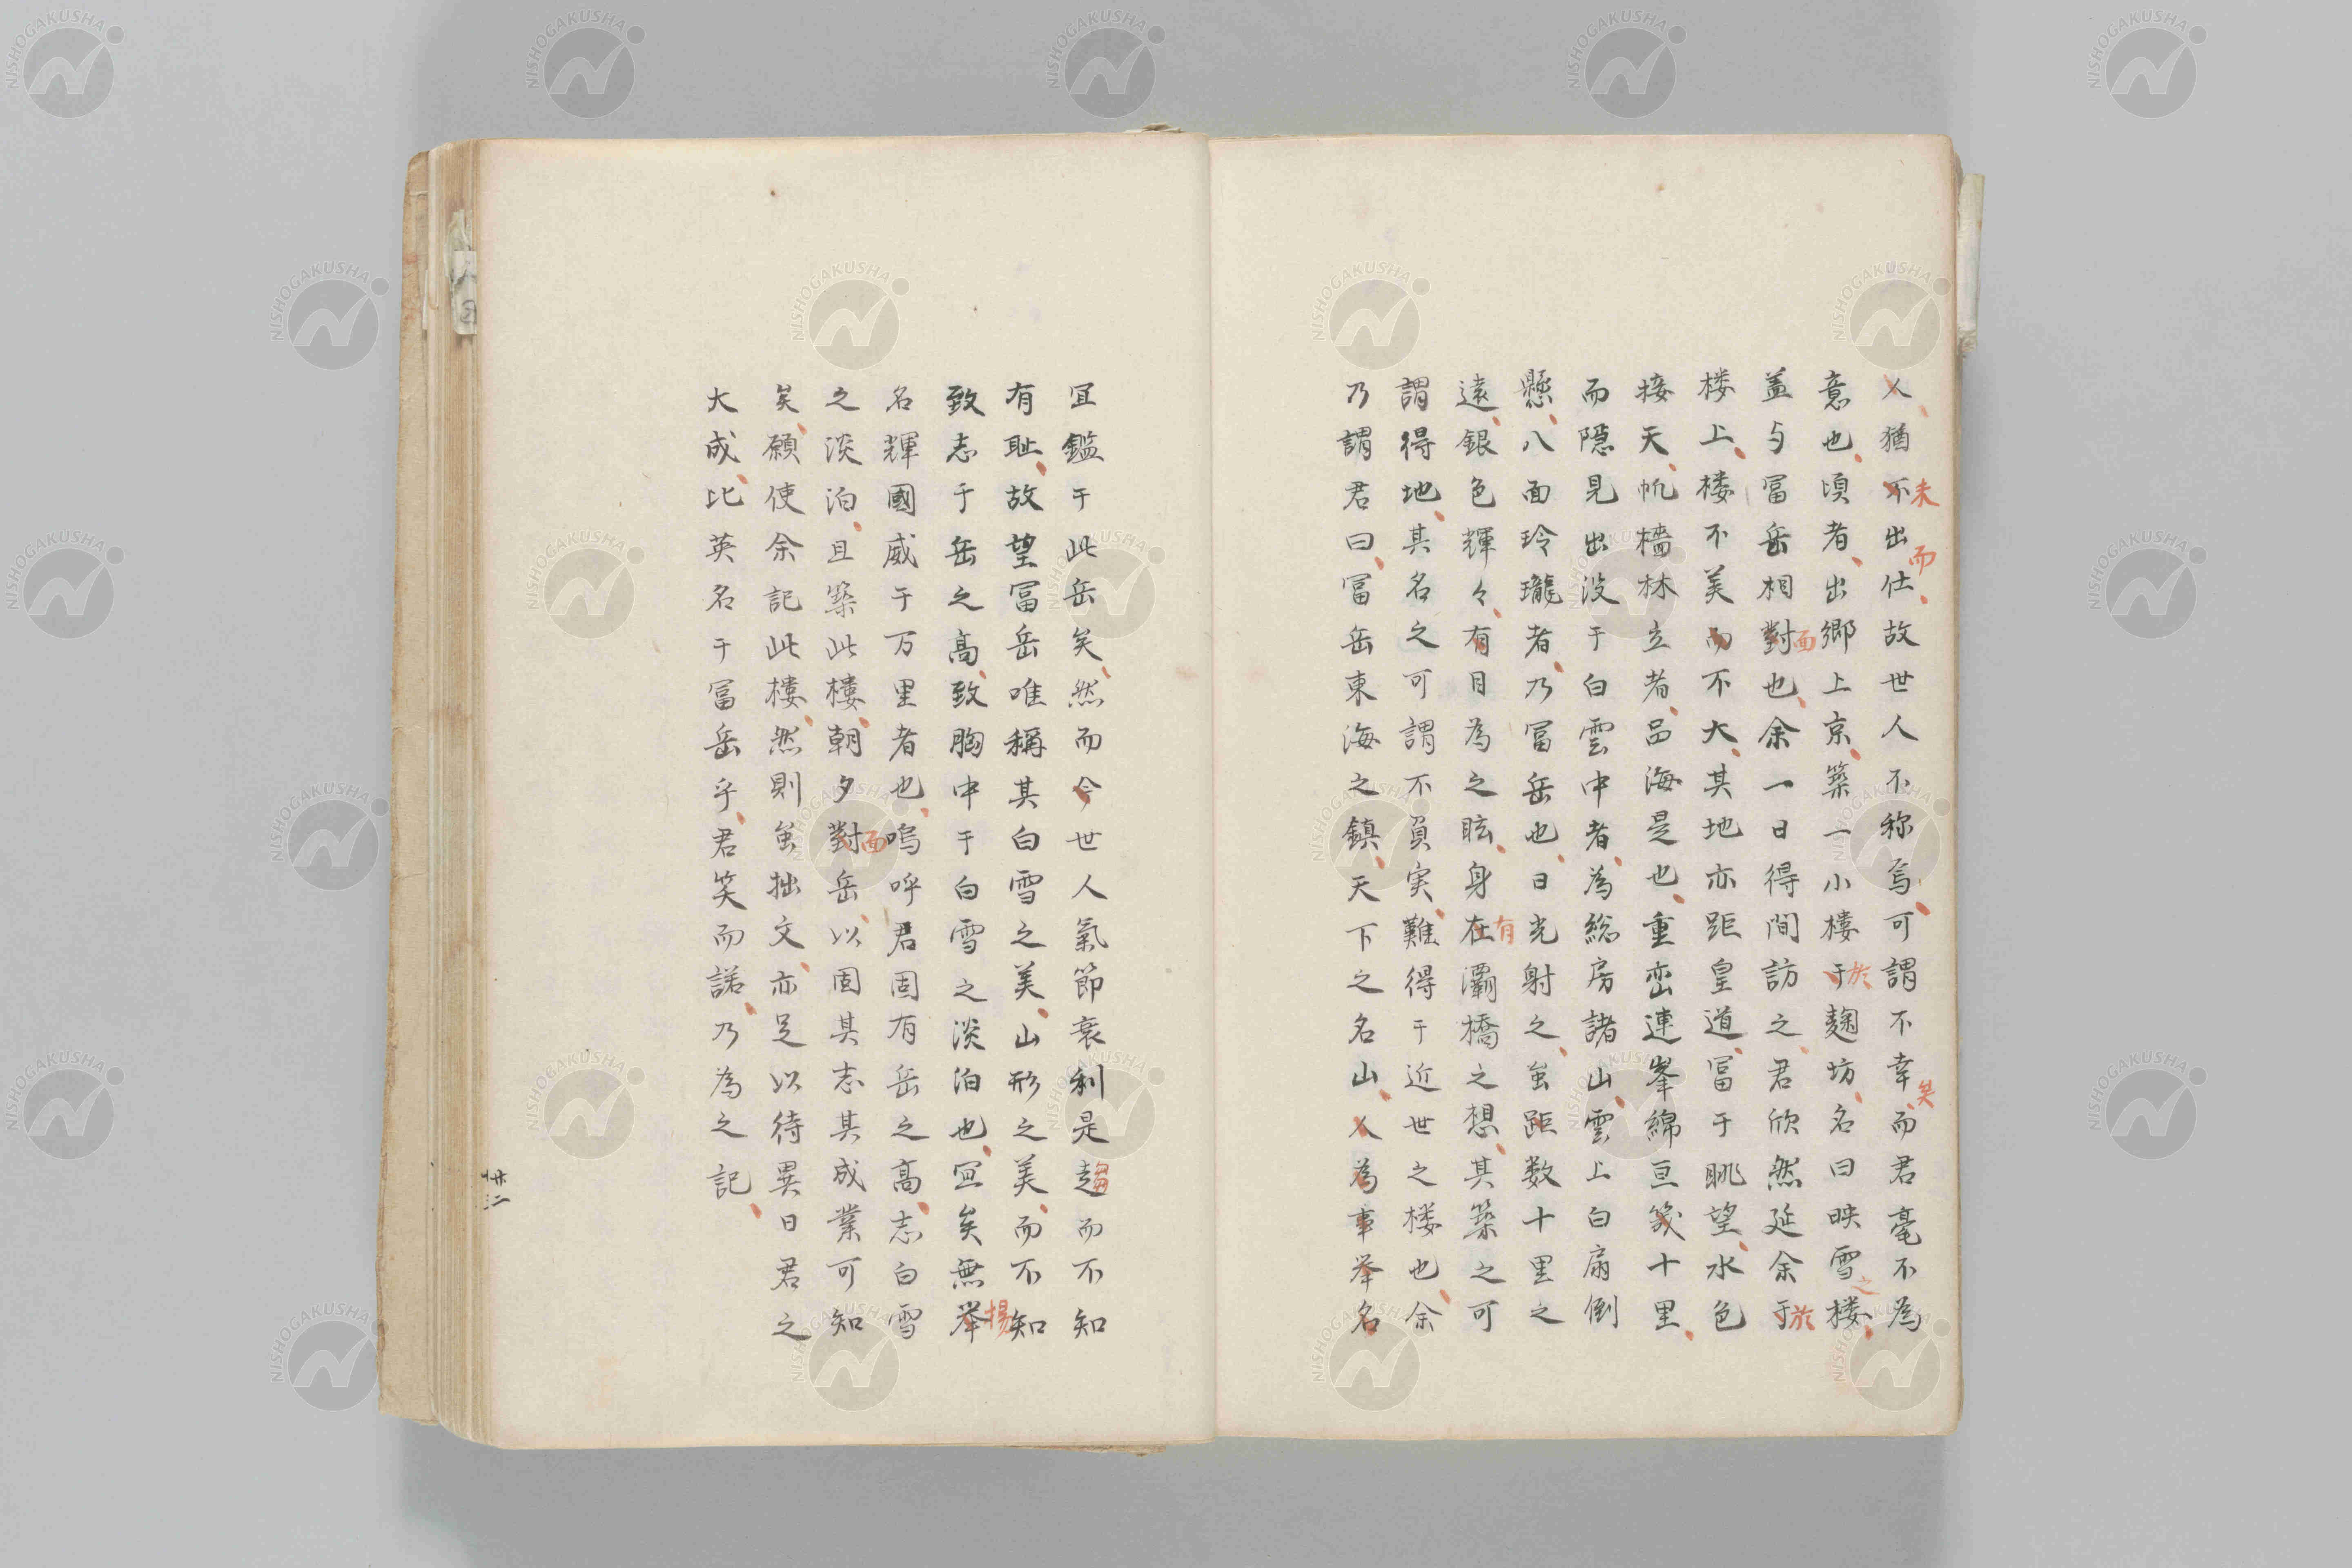 人猶不出仕故世人不称焉可謂不幸而君毫不為
未
而
矣
意也頃者出郷上京築一小樓于麹坊名曰映雪楼
於
之
盖与冨岳相對也余一日得間訪之君欣然延余于
面
於
楼上楼不美而不大其地亦距皇道冨于眺望水色
接天帆檣林立者品海是也重峦連峯綿亘幾十里
而隠見出没于白雲中者為総房諸山雲上白扇倒
懸八面玲瓏者乃冨岳也日光射之虽距数十里之
遠銀色輝々有目為之眩身在灞橋之想其築之可
有
謂得地其名之可謂不負実難得于近世之楼也余
乃謂君曰冨岳東海之鎮天下之名山人為事挙名
宜鑑于此岳矣然而今世人氣節衰利是趋而不知
有耻故望冨岳唯稱其白雪之美山形之美而不知
致志于岳之高致胸中于白雪之淡泊也宜矣無挙
揚
名輝國威于万里者也嗚呼君固有岳之高志白雪
之淡泊且築此樓朝夕對岳以固其志其成業可知
面
矣願使余記此樓然則虽拙文亦足以待異日君之
大成比英名于冨岳乎君笑而諾乃為之記
廿二
NISHOGAKUSHA